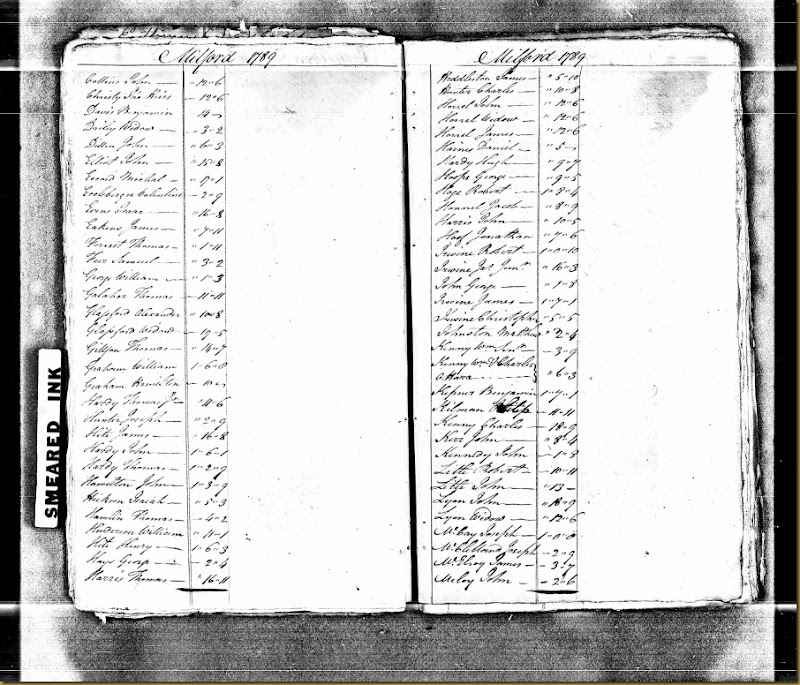 Milford 1789
Collins John — " 12 " 6
Christy — 12 " 6
Davis Benjamin 14 —
Dailey Widow — " 3 - 2
Dillen John — " 6 " 3
Elliot John — " 15 " 8
Evard Michal — " 17 " 1
Valentine — 2 " 9
Evens Isaac — " 16 " 8
Eakens James — " 7 " 11
Forrest Thomas — 1 " 11
Feer Samuel — " 3 " 2
George William — " 1 " 3
Galaher Thomas — 11 " 11
Glassford Alexander 10 " 8
Glassford Widow — 19 " 5
Thomas — " 14 " 7
Graham William 1 " 6 " 8
Graham Hamilton
Hardy Thomas Jr " 4 " 6
Hunter Joseph — " 2 " 9
Hite James — " 16 " 8
Hardy John — 1 " 6 " 1
Hardy Thomas — 1 " 2 " 9
Hamilton John — 1 " 3 " 9
Isaiah — " 5 " 3
Hamlin Thomas — 4 " 2
Henderson William " 11 " 1
Hite Henry — 1 " 6 " 3
Hays George — " 2 " 4
Harris Thomas — " 16 " 11
Milford 1789
Heddleston James — " 5 " 10
Hunter Charles — " 10 " 8
Horrel John — " 12 " 6
Horrel Widow — " 12 " 6
Horrel James — " 12 " 6
Haines Daniel — " 5 —
Hardy Hugh — " 9 " 7
George — " 9 " 5
Hoge Robert — 1 " 3 " 4
Hannel Jacob — " 8 " 9
Harris John — " 10 " 5
Jonathan — " 7 " 6
Irwine Robert — 1 " 0 " 10
Irwine Jas Junr " 16 " 3
John George — " 1 " 8
Irwine James — 1 " 7 " 1
Irwine Christopher " 5 " 5
Johnston Mathew " 2 " 4
Kenny Wm Senr — " 3 " 9
Kenny Wm & Charles
O.Hara — " 6 " 3
Kepner Benjamin 1 " 7 " 1
Kilman — 11 " 11
Kenny Charles — 18 " 9
Kerr John — " 8 " 4
Kennedy John — " 1 " 8
Litle Robert — " 10 " 11
Litle John — " 13 —
Lyon John — " 18 " 9
Lyon Widow — " 13 " 6
McCay Joseph — 1 " 0 " 8
McClelland Joseph — 2 " 9
McElroy James — " 3 " 7
Meloy John — " 2 " 6
SMEARED INK